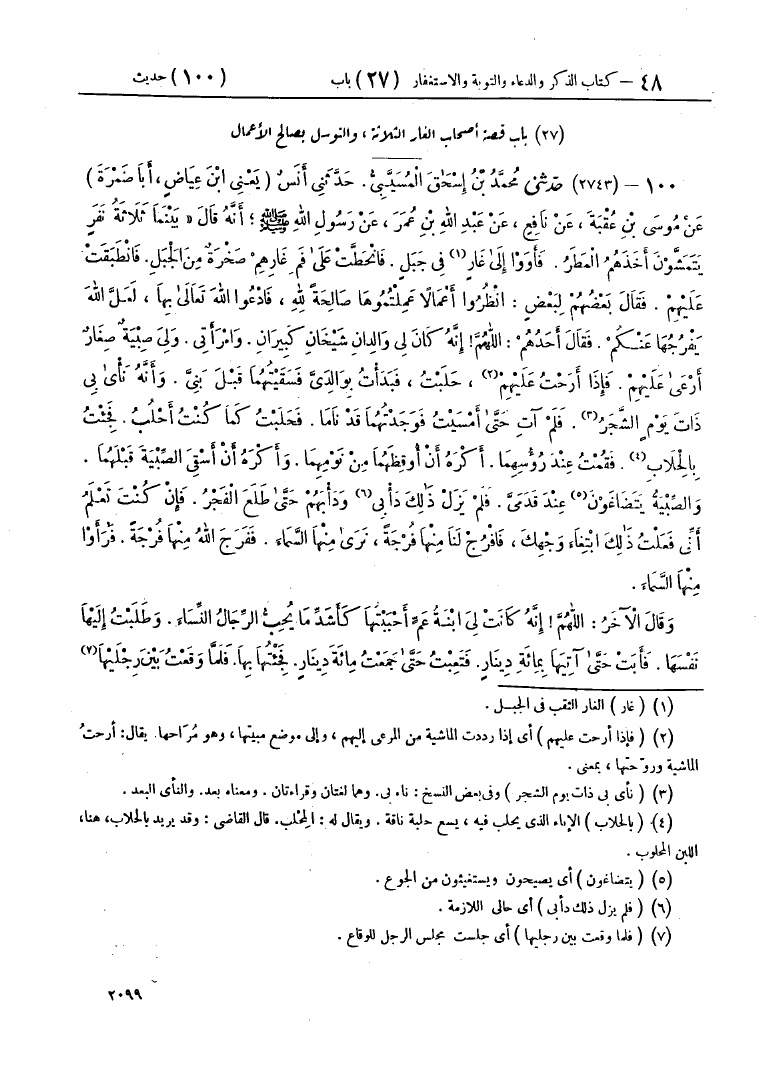 ٤٨ – كتاب الذكر والدعاء والتوبة والاستغفار (٢٧) باب (١٠٠) حديث
(٢٧) باب قصة أصحاب الغار الثلاثة ، والتوسل بصالح الأعمال
١٠٠ – (٢٧٤٣) حَدَّثَنِى مُحَمَّدُ بْنُ إِسْحَٰقَ الْمُسَيَّبِىُّ . حَدَّثَنِى أَنَسٌ ( يَعْنِى ابْنَ عِيَاضٍ ، أَبَا ضَمْرَةَ )
عَنْ مُوسَى بْنِ عُقْبَةَ ، عَنْ نَافِعٍ ، عَنْ عَبْدِ اللهِ بْنِ عُمَرَ ، عَنْ رَسُولِ اللهِ ﷺ ؛ أَنَّهُ قَالَ « بَيْنَمَا ثَلَاثَةُ نَفَرٍ
يَتَمَشَّوْنَ أَخَذَهُمُ الْمَطَرُ . فَأَوَوْا إِلَىٰ غَارٍ(١) فِى جَبَلٍ . فَانْحَطَّتْ عَلَىٰ فَمِ غَارِهِمْ صَخْرَةٌ مِنَ الْجَبَلِ . فَانْطَبَقَتْ
عَلَيْهِمْ . فَقَالَ بَعْضُهُمْ لِبَعْضٍ : انْظُرُوا أَعْمَالًا عَمِلْتُمُوهَا صَالِحَةً لِلهِ ، فَادْعُوا اللهَ تَعَالَىٰ بِهَا ، لَعَلَّ اللهَ
يَفْرُجُهَا عَنْكُمْ . فَقَالَ أَحَدُهُمْ : اللَّهُمَّ ! إِنَّهُ كَانَ لِى وَالِدَانِ شَيْخَانِ كَبِيرَانِ . وَامْرَأَتِى . وَلِىَ صِبْيَةٌ صِغَارٌ
أَرْعَىٰ عَلَيْهِمْ . فَإِذَا أَرَحْتُ عَلَيْهِمْ(٢) ، حَلَبْتُ ، فَبَدَأْتُ بِوَالِدَىَّ فَسَقَيْتُهُمَا قَبْلَ بَنِىَّ . وَأَنَّهُ نَأَىٰ بِى
ذَاتَ يَوْمٍ الشَّجَرُ(٣) . فَلَمْ آتِ حَتَّىٰ أَمْسَيْتُ فَوَجَدْتُهُمَا قَدْ نَامَا . فَحَلَبْتُ كَمَا كُنْتُ أَحْلُبُ . فَجِئْتُ
بِالْحِلَابِ(٤) . فَقُمْتُ عِنْدَ رُؤُسِهِمَا . أَكْرَهُ أَنْ أُوقِظَهُمَا مِنْ نَوْمِهِمَا . وَأَكْرَهُ أَنْ أَسْقِىَ الصِّبْيَةَ قَبْلَهُمَا .
وَالصِّبْيَةُ يَتَضَاغَوْنَ(٥) عِنْدَ قَدَمَىَّ . فَلَمْ يَزَلْ ذَٰلِكَ دَأْبِى(٦) وَدَأْبَهُمْ حَتَّىٰ طَلَعَ الْفَجْرُ . فَإِنْ كُنْتَ تَعْلَمُ
أَنِّى فَعَلْتُ ذَٰلِكَ ابْتِغَاءَ وَجْهِكَ ، فَافْرُجْ لَنَا مِنْهَا فُرْجَةً ، نَرَىٰ مِنْهَا السَّمَاءَ . فَفَرَجَ اللهُ مِنْهَا فُرْجَةً . فَرَأَوْا
مِنْهَا السَّمَاءَ .
وَقَالَ الْآخَرُ : اللَّهُمَّ ! إِنَّهُ كَانَتْ لِىَ ابْنَةُ عَمٍّ أَحْبَبْتُهَا كَأَشَدِّ مَا يُحِبُّ الرِّجَالُ النِّسَاءَ . وَطَلَبْتُ إِلَيْهَا
نَفْسَهَا . فَأَبَتْ حَتَّىٰ آتِيَهَا بِمِائَةِ دِينَارٍ . فَتَعِبْتُ حَتَّىٰ جَمَعْتُ مِائَةَ دِينَارٍ . فَجِئْتُهَا بِهَا . فَلَمَّا وَقَعْتُ بَيْنَ رِجْلَيْهَا(٧)
(١) ( غار ) الغار الثقب فى الجبل .
(٢) ( فإذا أرحت عليهم ) أى إذا رددت الماشية من المرعى إليهم ، وإلى موضع مبيتها ، وهو مُرَاحها. يقال: أرحتُ
الماشية وروّحتها ، بمعنى .
(٣) ( نأى بى ذات يوم الشجر ) وفى بعض النسخ : ناء بى. وهما لغتان وقراءتان . ومعناه بعد. والنأى البعد .
(٤) ( بالحلاب ) الإناء الذى يحلب فيه ، يسع حلبة ناقة . ويقال له : المِحْلَب. قال القاضى : وقد يريد بالحلاب، هنا،
اللبن المحلوب .
(٥) ( يتضاغون ) أى يصيحون ويستغيثون من الجوع .
(٦) ( فلم يزل ذلك دأبى ) أى حالى اللازمة .
(٧) ( فلما وقعت بين رجليها ) أى جلست مجلس الرجل للوقاع .
٢٠٩٩